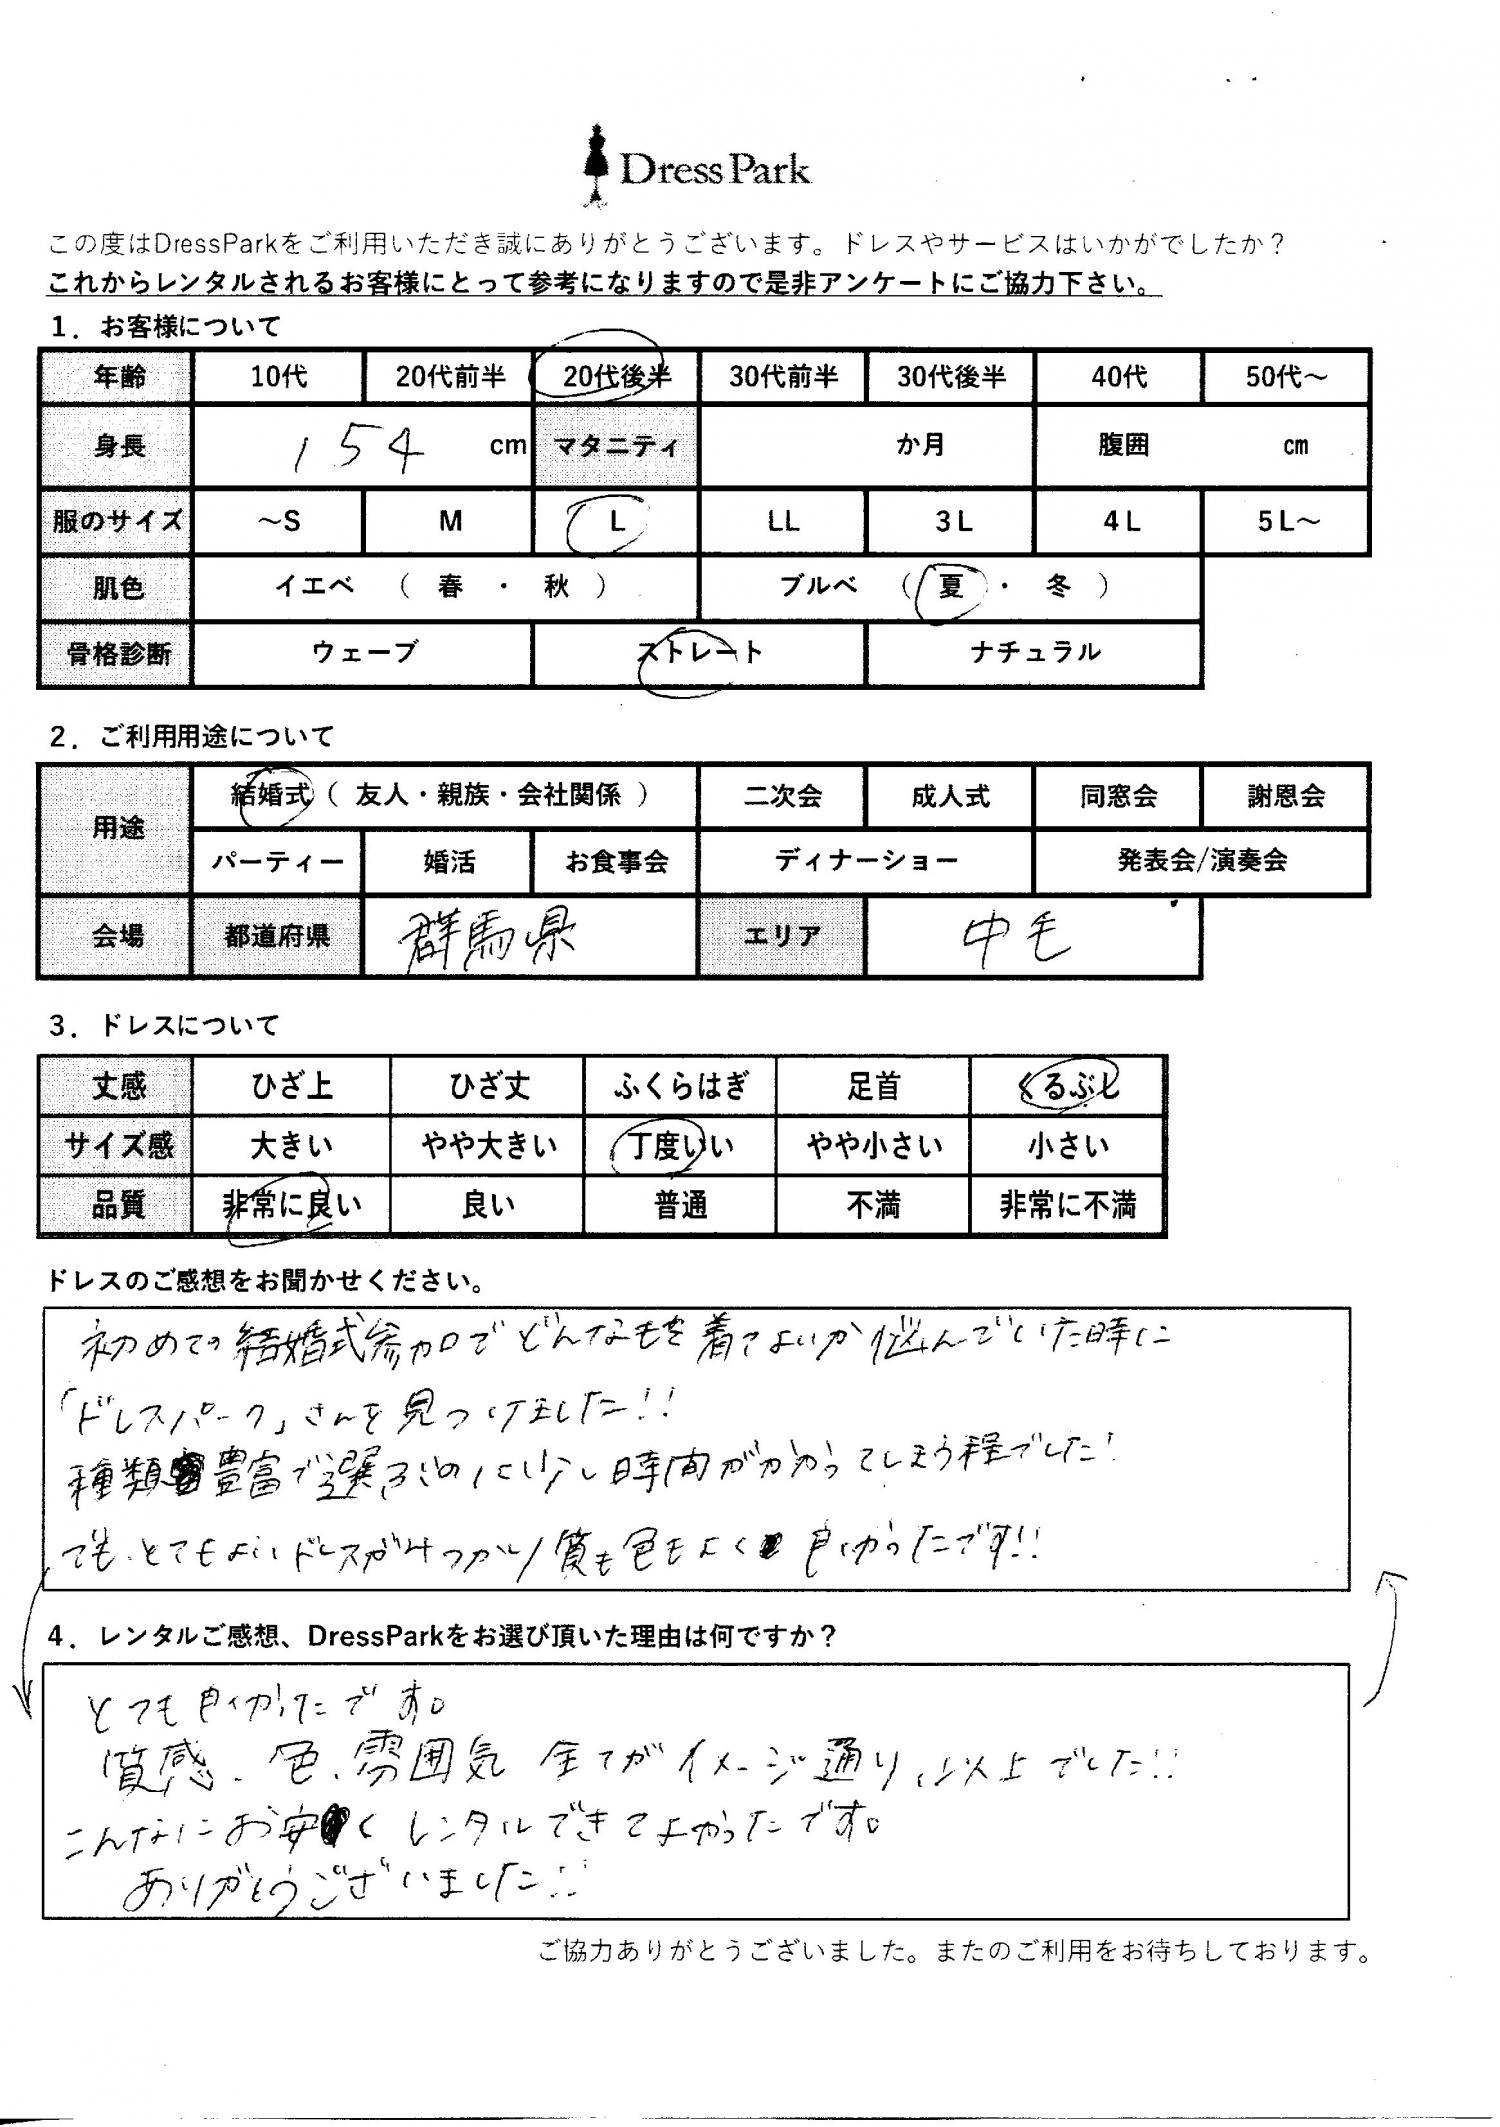 Dress Park
この度はDressParkをご利用いただき誠にありがとうございます。ドレスやサービスはいかがでしたか？
これからレンタルされるお客様にとって参考になりますので是非アンケートにご協力下さい。
1．お客様について
年齢 10代 20代前半 20代後半 30代前半 30代後半 40代 50代～
身長 154 cm マタニティ か月 腹囲 cm
服のサイズ ～S M L LL 3L 4L 5L～
肌色 イエベ （ 春 ・ 秋 ） ブルベ （ 夏 ・ 冬 ）
骨格診断 ウェーブ ストレート ナチュラル
2．ご利用用途について
用途 結婚式（ 友人・親族・会社関係 ） 二次会 成人式 同窓会 謝恩会
パーティー 婚活 お食事会 ディナーショー 発表会/演奏会
会場 都道府県 群馬県 エリア 中毛
3．ドレスについて
丈感 ひざ上 ひざ丈 ふくらはぎ 足首 くるぶし
サイズ感 大きい やや大きい 丁度いい やや小さい 小さい
品質 非常に良い 良い 普通 不満 非常に不満
ドレスのご感想をお聞かせください。
初めての結婚式参加でどんなもを着てよいか悩んでいた時に
「ドレスパーク」さんを見つけました!!
種類豊富で選ぶのに少し時間がかかってしまう程でした!
でも、とてもよいドレスがみつかり質も色もよく良かったです!!
4．レンタルご感想、DressParkをお選び頂いた理由は何ですか？
とても良かったです。
質感、色、雰囲気 全てがイメージ通り、以上でした!!
こんなにお安く レンタルできてよかったです。
ありがとうございました!!
ご協力ありがとうございました。またのご利用をお待ちしております。